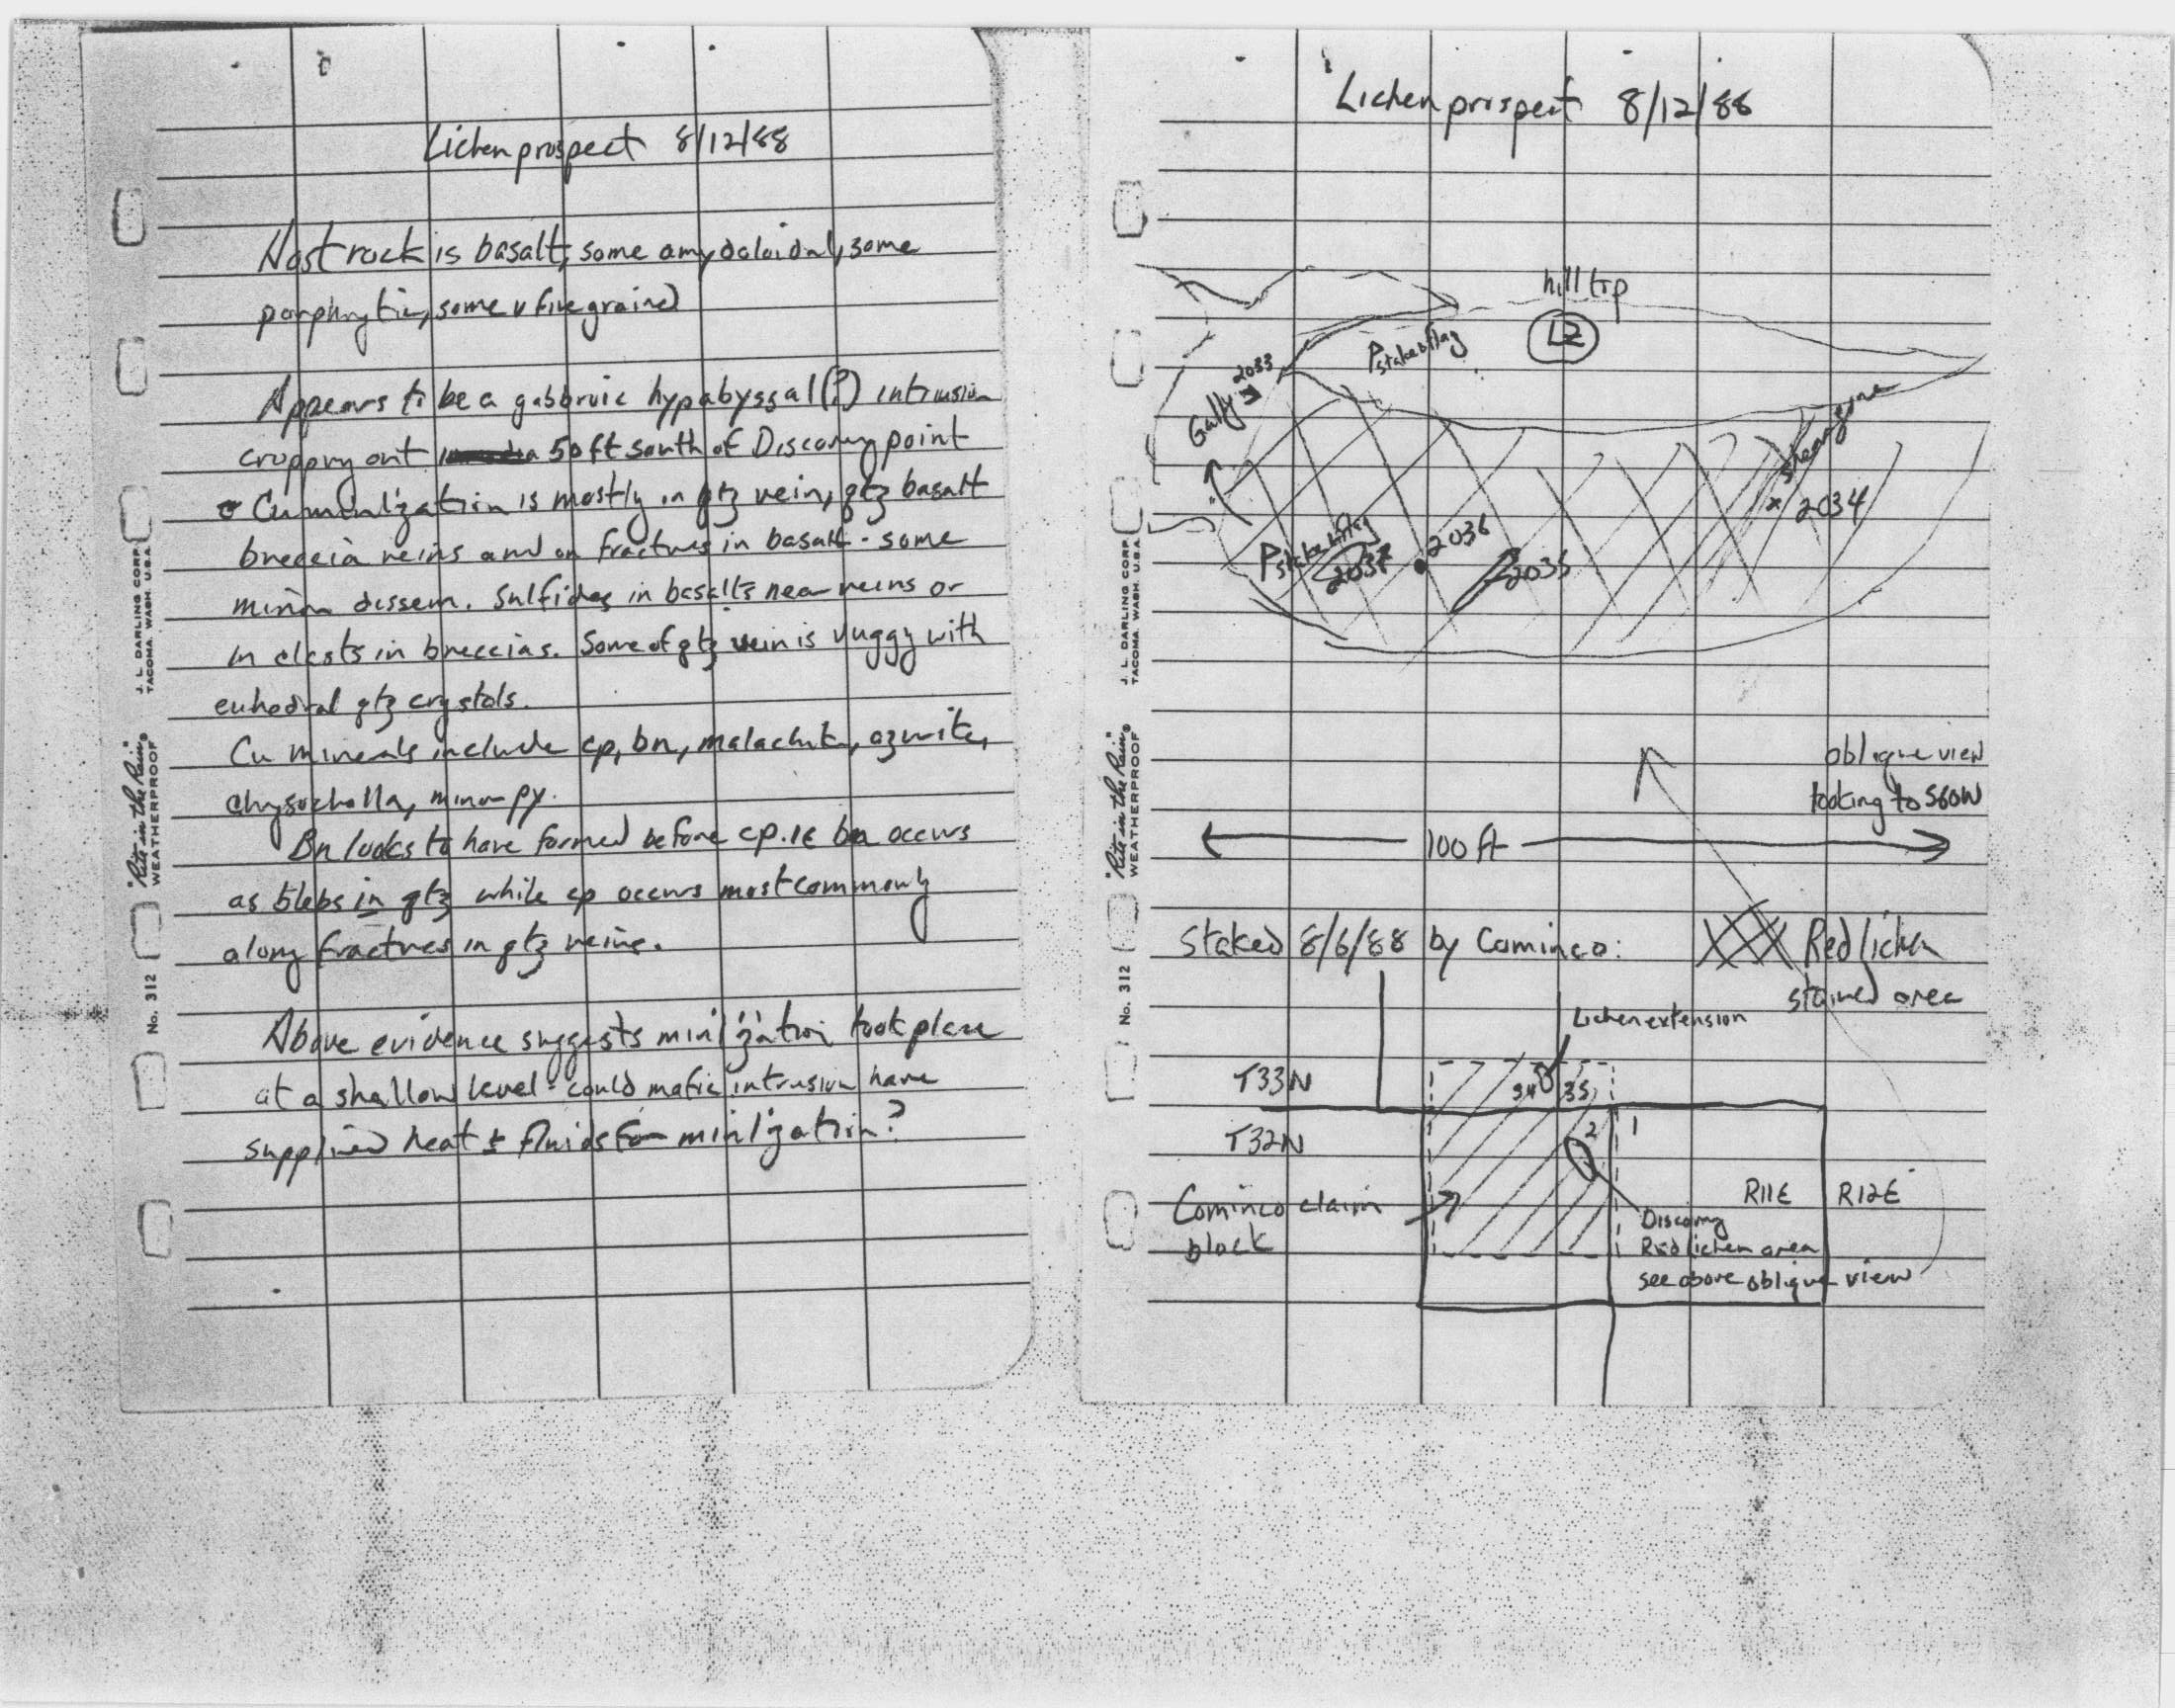 Lichen prospect 8/12/88
Host rock is basalt, some amydaloidal, some
porphrytic, some v fine grained
Appears to be a gabbroic hypabyssal(?) intrusion
cropping out 50 ft south of Discovery point
Cu minlization is mostly in qtz vein, qtz basalt
breccia veins and on fractures in basalt - some
minor dissem. sulfides in basalts near veins or
in clasts in breccias. Some of qtz vein is vuggy with
euhedral qtz crystals.
Cu minerals include cp, bn, malachite, azurite,
chrysocholla, minor py.
Bn looks to have formed before cp. ie bn occurs
as blebs in qtz while cp occurs most commonly
along fractures in qtz veins.
Above evidence suggests minlization took place
at a shallow level - could mafic intrusion have
supplied heat ± fluids for minlization?
J. L. DARLING CORP.
TACOMA, WASH. U.S.A.
"Rite in the Rain"
WEATHERPROOF
No. 312
Lichen prospect 8/12/88
hill top
LZ
P stake & flag
2033
Gully
shear zone
2034
P stake & flag
2037
2036
2035
oblique view
looking to S60W
100 ft
Staked 8/6/88 by Cominco:
Red lichen
stained area
Lichen extension
T33N
34 35
T32N
2 1
R11E R12E
Cominco claim
block
Discovery
Red lichen area
see above oblique view
J. L. DARLING CORP.
TACOMA, WASH. U.S.A.
"Rite in the Rain"
WEATHERPROOF
No. 312